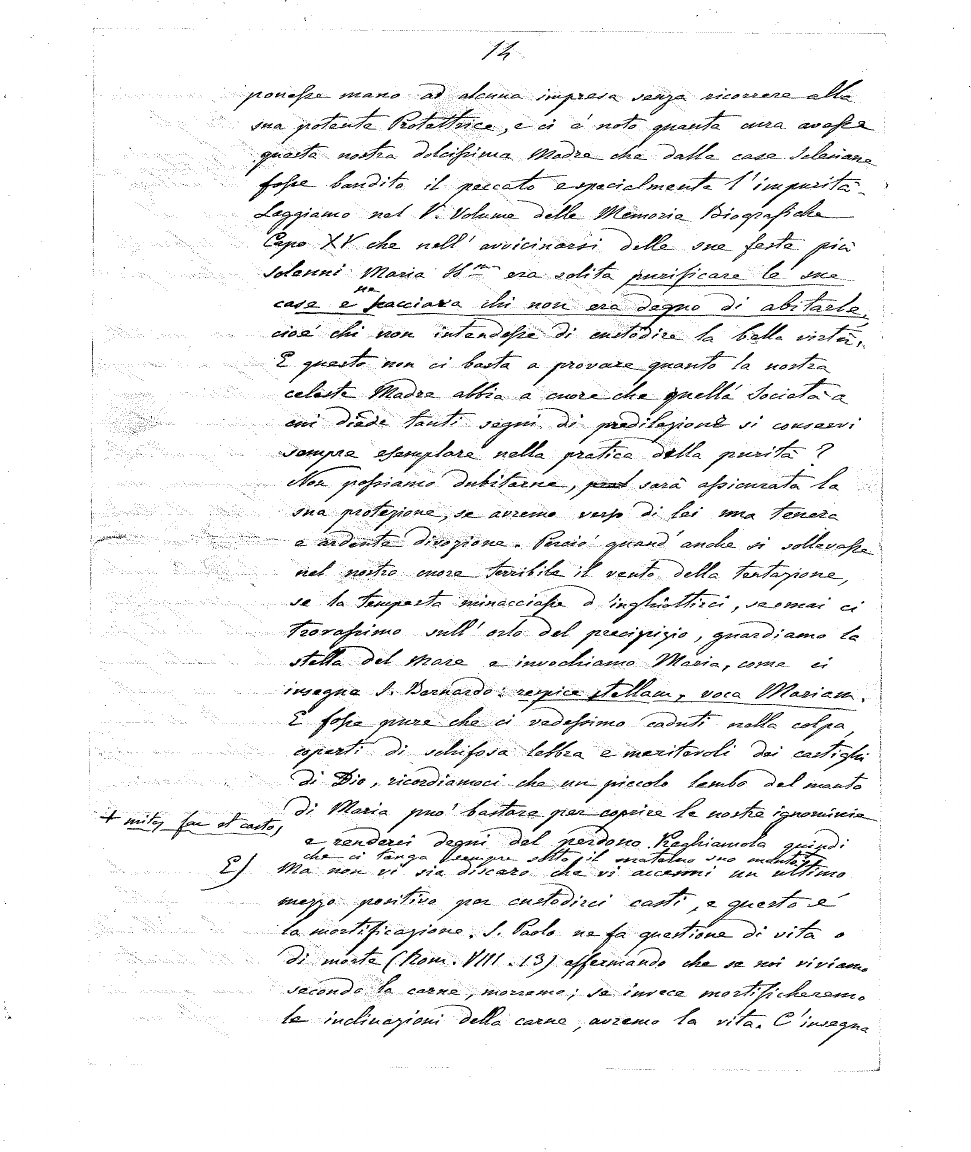 14
ponesse mano ad alcuna impresa senza ricorrere alla
sua potente Protettrice, e ci é noto quanta cura avesse
questa nostra dolcissima Madre che dalle case Salesiane
fosse bandito il peccato especialmente l'impurità.
Leggiamo nel V. Volume delle Memorie Biografiche
Capo XV che nell'avvicinarsi delle sue feste più
solenni Maria SS.ma era solita purificare le sue
case e ne scacciava chi non era degno di abitarle,
cioé chi non intendesse di custodire la bella virtù.
E questo non ci basta a provare quanto la nostra
celeste Madre abbia a cuore che quella Società a
cui diede tanti segni di predilezione si conservi
sempre esemplare nella pratica della purità?
Non possiamo dubitarne, sarà assicurata la
sua protezione, se avremo verso di lei una tenera
e ardente divozione. Perció quand'anche si sollevasse
nel nostro cuore terribile il vento della tentazione,
se la tempesta minacciasse d'inghiottirci, semai ci
trovassimo sull'orlo del precipizio, guardiamo la
stella del mare e invochiamo Maria, come ci
insegna S. Bernardo: respice stellam, voca Mariam.
E fosse pure che ci vedessimo caduti nella colpa,
coperti di schifosa lebbra e meritevoli dei castighi
di Dio, ricordiamoci che un piccolo lembo del manto
di Maria puó bastare per coprire le nostre ignominie
+ mites fac et castos
e renderci degni del perdono. Preghiamola quindi
che ci tenga sempre sotto il materno suo manto.+
E) Ma non vi sia discaro che vi accenni un ultimo
mezzo positivo per custodirci casti, e questo é
la mortificazione. S. Paolo ne fa questione di vita o
di morte (Rom. VIII. 13) affermando che se noi viviamo
secondo la carne, morremo; se invece mortificheremo
le inclinazioni della carne, avremo la vita. C'insegna